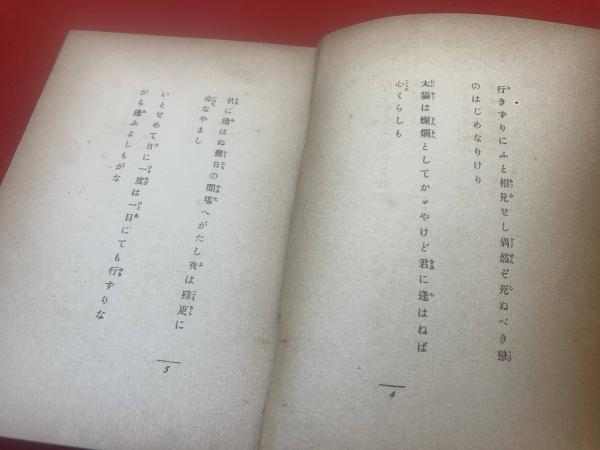 行きずりにふと相見せし偶然ぞ死ぬべき戀
のはじめなりけり
太陽は燦爛としてかゞやけど君に逢はねば
心くらしも
4
君に逢はぬ幾日の間堪へがたし夜は殊更に
命なやまし
いとせめて日に一度は一目にても行ずりな
がら逢ふよしもがな
5